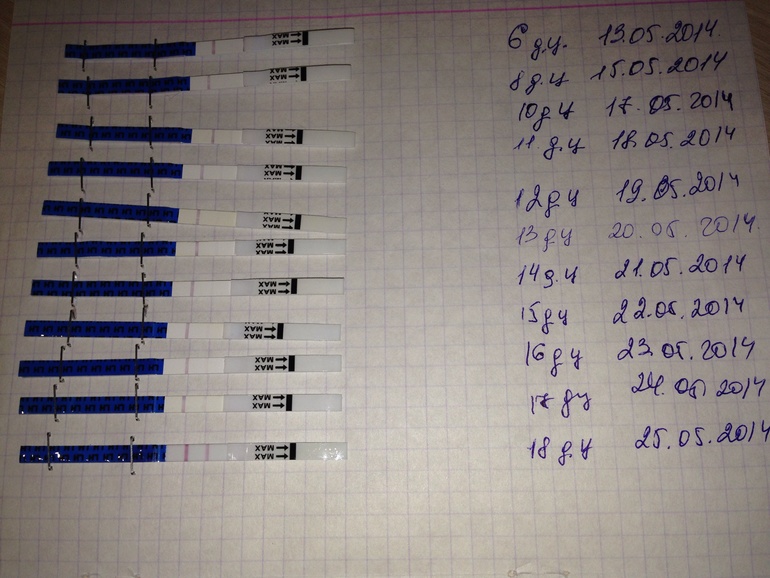 MAX 6 д.ц. 13.05.2014
MAX 8 д.ц 15.05.2014
MAX 10 д ц 17.05.2014
MAX 11 д.ц 18.05.2014
MAX 12 д ц 19.05.2014
MAX 13 д ц 20.05.2014
MAX 14 д.ц 21.05.2014
MAX 15 д ц 22.05.2014
MAX 16 д ц 23.05.2014
MAX 17 д ц 24.05 2014
MAX 18 д.ц 25.05.2014